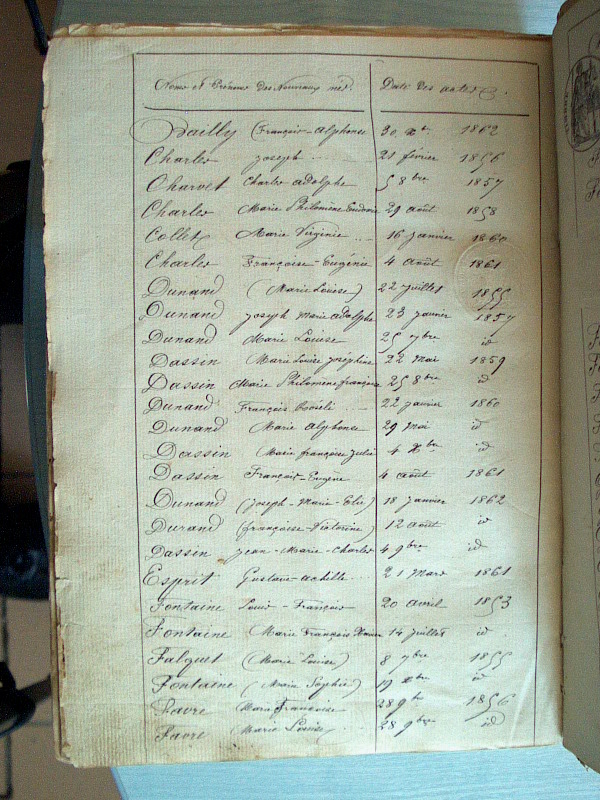 Noms et Prénoms des Nouveaux nés. Date des actes.
Bailly (François-Alphonse 30 xbre 1862
Charles joseph 21 février 1856
Charvet Charles adolphe 5 8bre 1857
Charles Marie Philomène 29 août 1858
Collet Marie Virginie 16 janvier 1860
Charles Françoise-Eugénie 4 août 1861
Dunand (Marie Louise) 22 juillet 1855
Dunand joseph Marie adolphe 23 janvier 1857
Dunand Marie Louise 25 7bre id
Dassin Marie Louise joséphine 22 Mai 1859
Dassin Marie Philomène françoise 25 8bre id
Dunand François 22 janvier 1860
Dunand Marie alphonse 29 mai id
Dassin Marie françoise julie 4 Xbre id
Dassin François-Eugène 4 août 1861
Dunand (joseph-Marie-Elie) 18 janvier 1862
Durand (françoise-Victorine) 12 août id
Dassin jean-Marie-Charles 4 9bre id
Esprit Gustave-achille 21 Mars 1861
Fontaine Louis-François 20 avril 1853
Fontaine (Marie François 14 juillet id
Falquet (Marie Louise) 8 7bre 1855
Fontaine (Marie Sophie) 19 xbre id
Favre Marie françoise 28 9bre 1856
Favre Marie Louise 28 9bre id